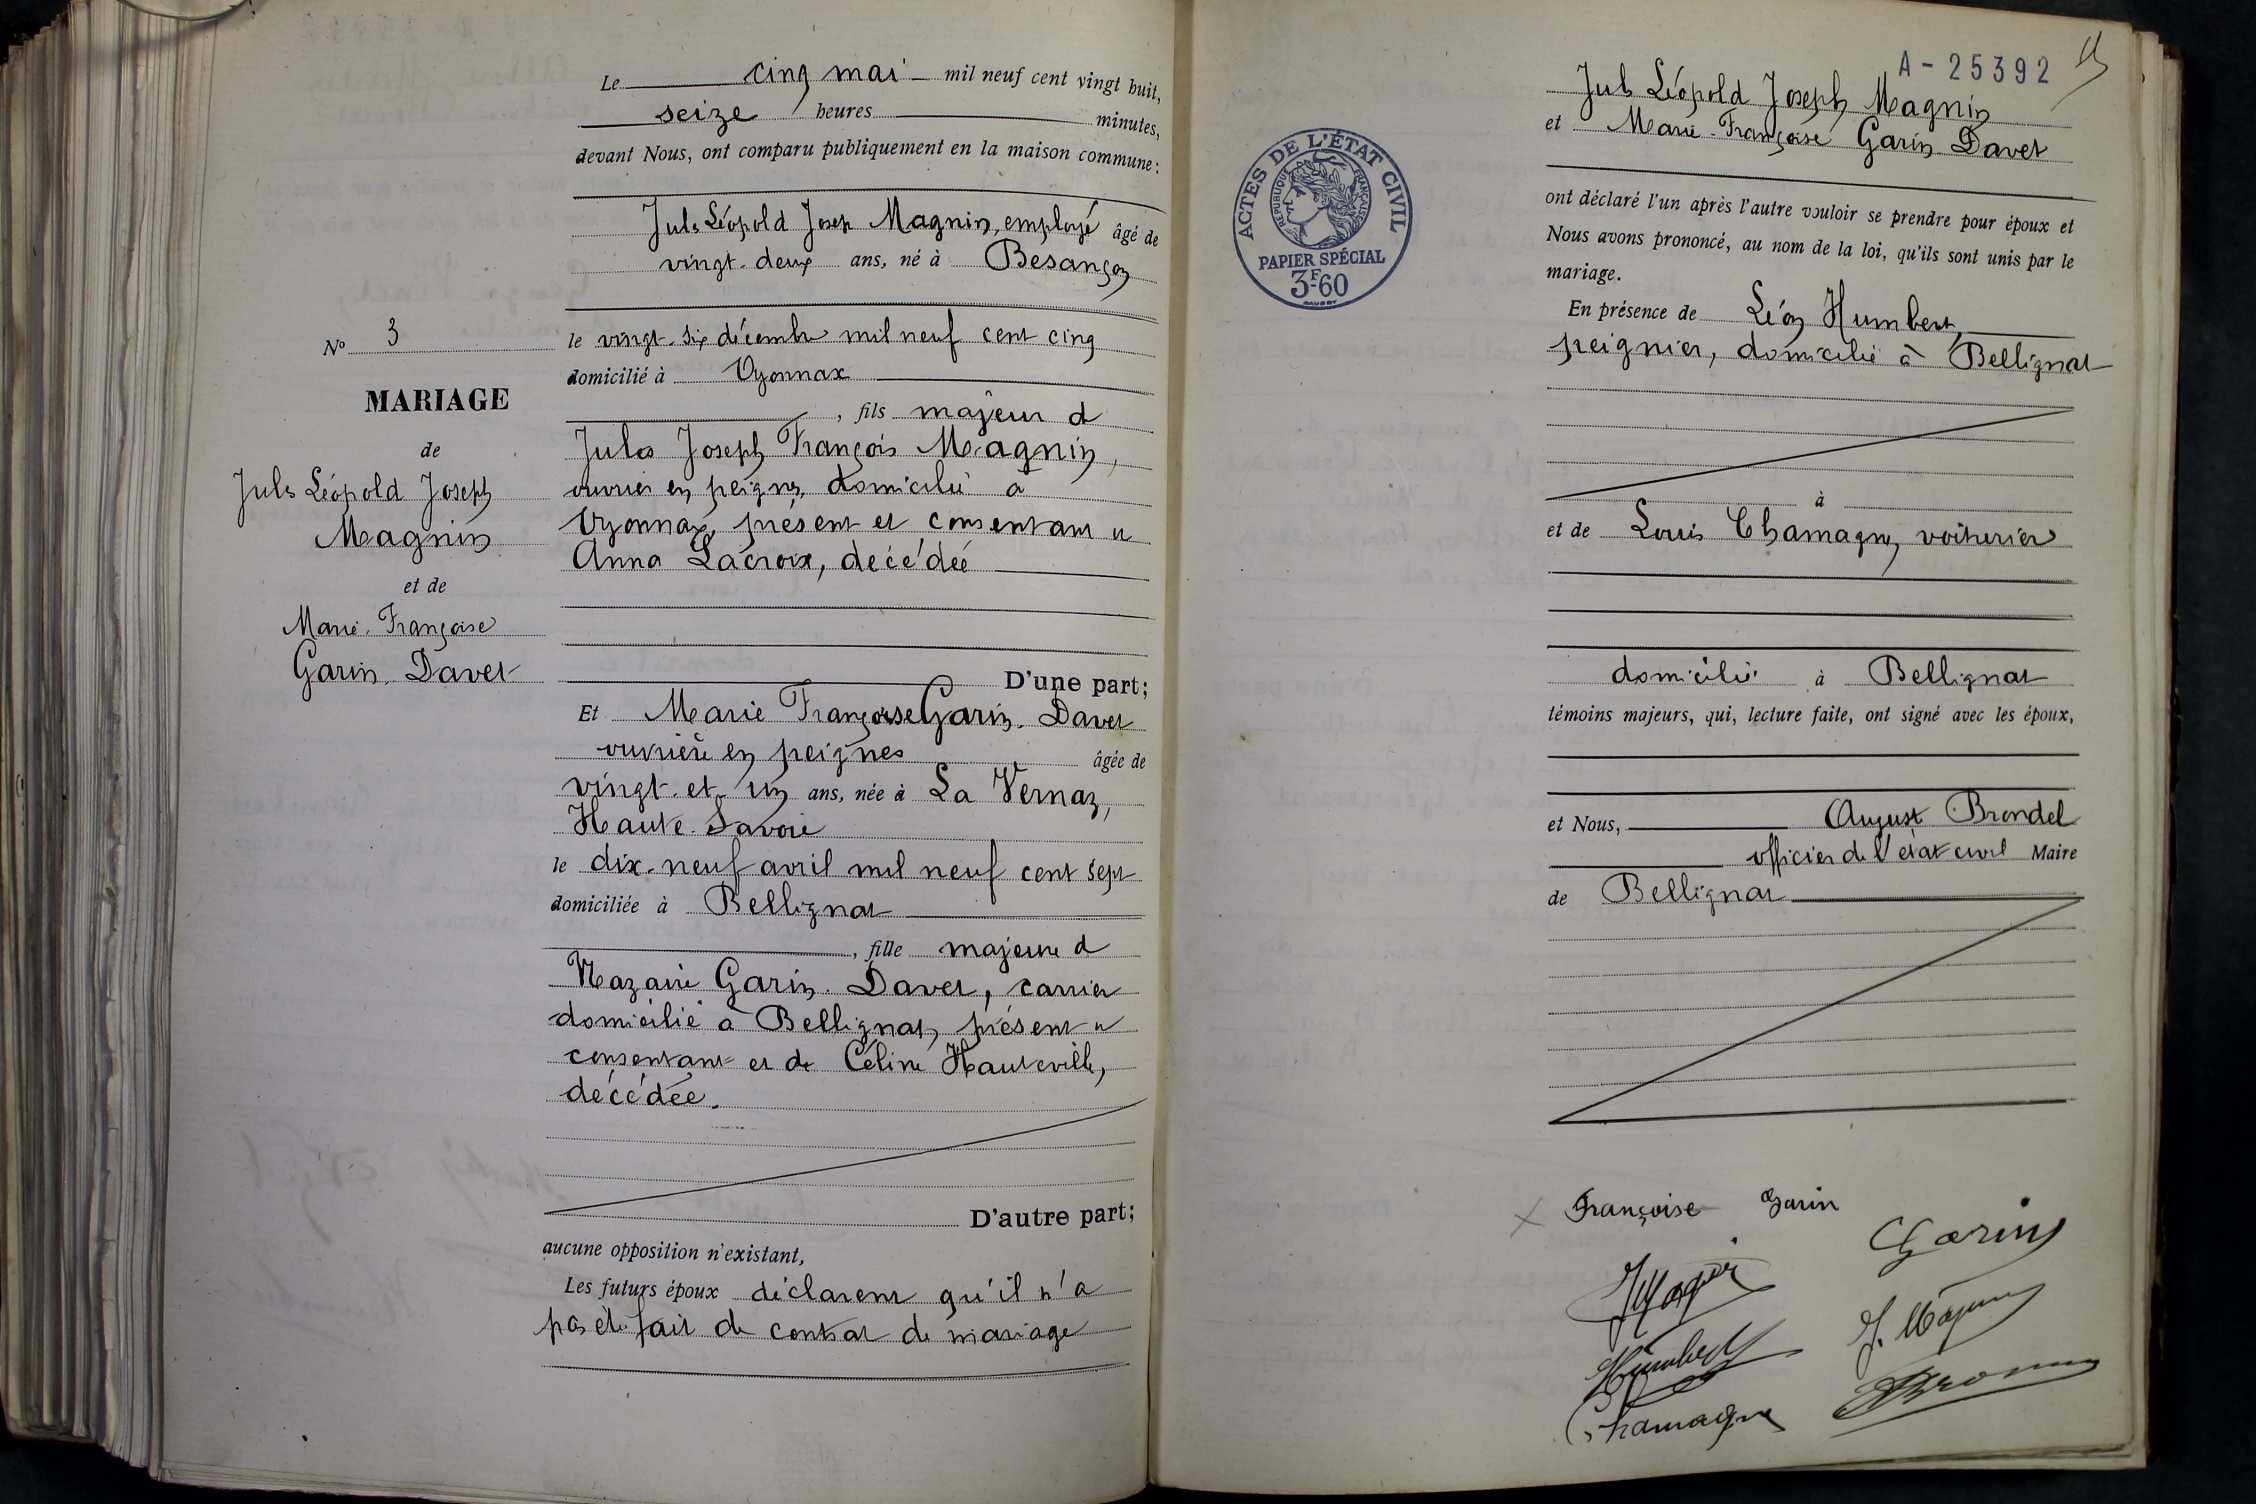 Le cinq mai mil neuf cent vingt huit,
seize heures minutes,
devant Nous, ont comparu publiquement en la maison commune :
Jules Léopold Joseph Magnin, employé âgé de
vingt-deux ans, né à Besançon
le vingt-six décembre mil neuf cent cinq
domicilié à Oyonnax
, fils majeur d
Jules Joseph François Magnin,
ouvrier en peignes, domicilié à
Oyonnax, présent et consentant et
Anna Lacroix, décédée
D'une part;
Nº 3
MARIAGE
de
Jules Léopold Joseph
Magnin
et de
Marie-Françoise
Garin-Davet
Et Marie Françoise Garin-Davet
ouvrière en peignes âgée de
vingt-et-un ans, née à La Vernaz,
Haute-Savoie
le dix-neuf avril mil neuf cent sept
domiciliée à Bellignat
, fille majeure d
Nazaire Garin-Davet, carrier
domicilié à Bellignat, présent et
consentant et de Céline Hauteville,
décédée.
D'autre part;
aucune opposition n'existant,
Les futurs époux déclarent qu'il n'a
pas été fait de contrat de mariage
A-25392
ACTES DE L'ÉTAT CIVIL
RÉPUBLIQUE FRANÇAISE
PAPIER SPÉCIAL
3F60
Jules Léopold Joseph Magnin
et Marie-Françoise Garin-Davet
ont déclaré l'un après l'autre vouloir se prendre pour époux et
Nous avons prononcé, au nom de la loi, qu'ils sont unis par le
mariage.
En présence de Léon Humbert,
peignier, domicilié à Bellignat
à
et de Louis Chamagne, voiturier
domicilié à Bellignat
témoins majeurs, qui, lecture faite, ont signé avec les époux,
et Nous, Auguste Brondel
officier de l'état civil Maire
de Bellignat
Françoise Garin
Garin
JMagnin
J. Magnin
Humbert
Chamagne